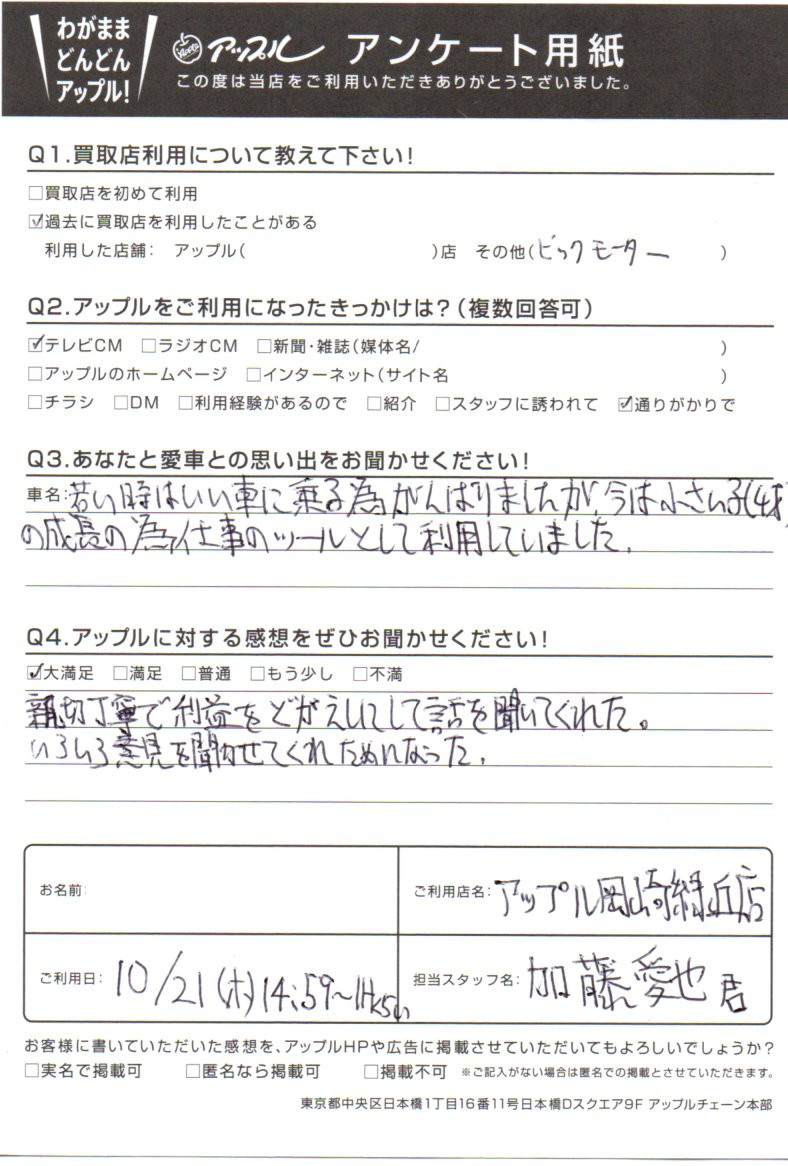 わがまま
どんどん
アップル!
Apple アップル アンケート用紙
この度は当店をご利用いただきありがとうございました。
Q1.買取店利用について教えて下さい!
□買取店を初めて利用
☑過去に買取店を利用したことがある
利用した店舗: アップル( )店 その他(ビックモーター )
Q2.アップルをご利用になったきっかけは?(複数回答可)
☑テレビCM □ラジオCM □新聞・雑誌(媒体名/ )
□アップルのホームページ □インターネット(サイト名 )
□チラシ □DM □利用経験があるので □紹介 □スタッフに誘われて ☑通りがかりで
Q3.あなたと愛車との思い出をお聞かせください!
車名:若い時はいい車に乗る為がんばりましたが、今は小さい子(4才)
の成長の為、仕事のツールとして利用していました。
Q4.アップルに対する感想をぜひお聞かせください!
☑大満足 □満足 □普通 □もう少し □不満
親切丁寧で利益をどがえしにして話を聞いてくれた。
いろいろ意見を聞かせてくれためになった。
お名前:
ご利用店名: アップル岡崎緑丘店
ご利用日: 10/21(木)14:59〜1Hくらい
担当スタッフ名: 加藤愛也君
お客様に書いていただいた感想を、アップルHPや広告に掲載させていただいてもよろしいでしょうか?
□実名で掲載可 □匿名なら掲載可 □掲載不可 ※ご記入がない場合は匿名での掲載とさせていただきます。
東京都中央区日本橋1丁目16番11号日本橋Dスクエア9F アップルチェーン本部